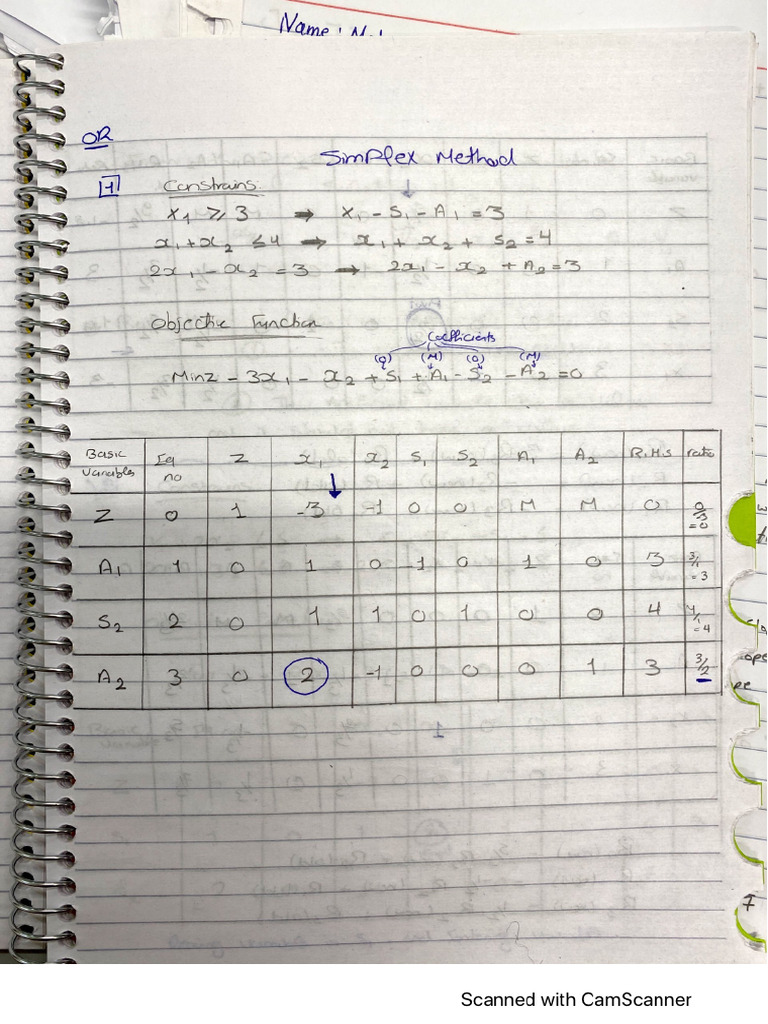 Name :
OR
Simplex Method
1 Constrains:
x1 ≥ 3 → x1 - S1 - A1 = 3
x1 + x2 ≤ 4 → x1 + x2 + S2 = 4
2x1 - x2 = 3 → 2x1 - x2 + A2 = 3
Objective Function
Coefficients
(0) (M) (0) (M)
Min z - 3x1 - x2 + S1 + A1 - S2 - A2 = 0
Basic Variables Eq no Z x1 x2 S1 S2 A1 A2 R.H.S ratio
Z 0 1 -3 -1 0 0 M M 0 0/3 = 0
A1 1 0 1 0 -1 0 1 0 3 3/1 = 3
S2 2 0 1 1 0 1 0 0 4 4/1 = 4
A2 3 0 2 -1 0 0 0 1 3 3/2
7
Scanned with CamScanner